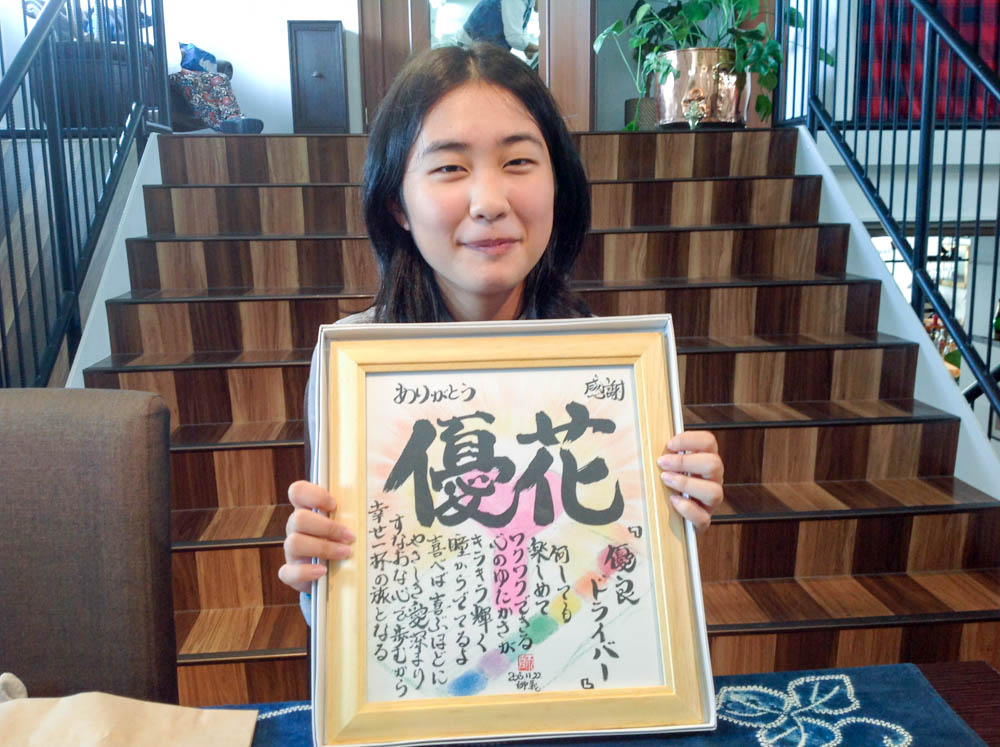 ありがとう
感謝
優花
『優良
ドライバー』
何しても
楽しめて
ワクワクできる
心のゆたかさが
キラキラ輝く
瞳からでてるよ
喜べば喜ぶほどに
やさしさ愛深まり
すなおな心で歩むから
幸せ一杯の旅となる